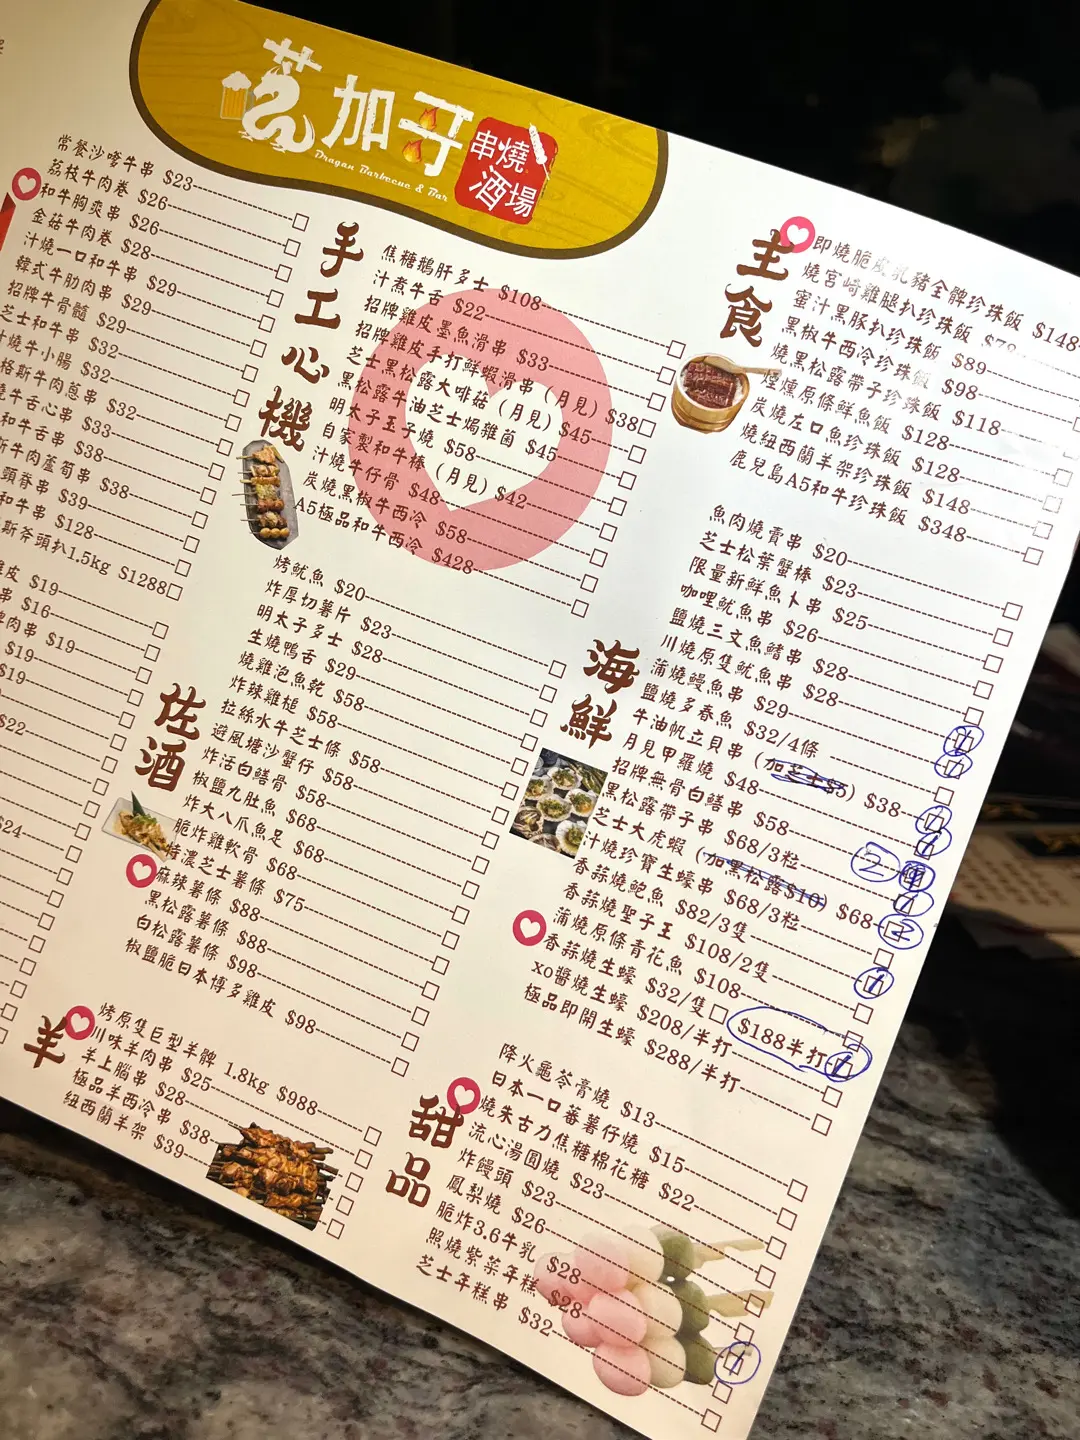 加哥
串燒
酒場
Dragon Barbecue & Bar
常餐沙嗲牛串 $23
荔枝牛肉卷 $26
和牛胸爽串 $26
金菇牛肉卷 $28
汁燒一口和牛串 $29
韓式牛肋肉串 $29
招牌牛骨髓 $29
芝士和牛串 $32
汁燒牛小腸 $32
格斯牛肉蔥串 $32
燒牛舌心串 $33
和牛舌串 $38
斯牛肉蘆筍串 $38
頭脊串 $39
和牛串 $128
斯斧頭扒1.5kg $1288
雞皮 $19
串 $16
脾肉串 $19
$19
$19
$22
$24
手工心機
焦糖鵝肝多士 $108
汁煮牛舌 $22
招牌雞皮墨魚滑串 $33
招牌雞皮手打鮮蝦滑串 (月見) $38
芝士黑松露大啡菇 (月見) $45
黑松露牛油芝士焗雜菌 $45
明太子玉子燒 $58
自家製和牛棒 (月見) $42
汁燒牛仔骨 $48
炭燒黑椒牛西冷 $58
A5極品和牛西冷 $428
佐酒
烤魷魚 $20
炸厚切薯片 $23
明太子多士 $28
生燒鴨舌 $29
燒雞泡魚乾 $58
炸辣雞槌 $58
拉絲水牛芝士條 $58
避風塘沙蟹仔 $58
炸活白鱔骨 $68
椒鹽九肚魚 $68
炸大八爪魚足 $68
脆炸雞軟骨 $68
特濃芝士薯條 $75
麻辣薯條 $88
黑松露薯條 $88
白松露薯條 $98
椒鹽脆日本博多雞皮 $98
羊
烤原隻巨型羊髀 1.8kg $988
川味羊肉串 $25
羊上腦串 $28
極品羊西冷串 $38
紐西蘭羊架 $39
主食
即燒脆皮乳豬全髀珍珠飯 $148
燒宮崎雞腿扒珍珠飯 $78
蜜汁黑豚扒珍珠飯 $89
黑椒牛西冷珍珠飯 $98
燒黑松露帶子珍珠飯 $118
煙燻原條鮮魚飯 $128
炭燒左口魚珍珠飯 $128
燒紐西蘭羊架珍珠飯 $148
鹿兒島A5和牛珍珠飯 $348
海鮮
魚肉燒賣串 $20
芝士松葉蟹棒 $23
限量新鮮魚卜串 $25
咖哩魷魚串 $26
鹽燒三文魚鰭串 $28
川燒原隻魷魚串 $28
蒲燒鰻魚串 $29
鹽燒多春魚 $32/4條
牛油帆立貝串 (加芝士$5) $38
月見甲羅燒 $48
招牌無骨白鱔串 $58
黑松露帶子串 $68/3粒 2
芝士大虎蝦 (加黑松露$10) $68
汁燒珍寶生蠔串 $68/3粒 2
香蒜燒鮑魚 $82/3隻
香蒜燒聖子王 $108/2隻
蒲燒原條青花魚 $108
香蒜燒生蠔 $32/隻 $188半打
xo醬燒生蠔 $208/半打
極品即開生蠔 $288/半打
甜品
降火龜苓膏燒 $13
日本一口蕃薯仔燒 $15
燒朱古力焦糖棉花糖 $22
流心湯圓燒 $23
炸饅頭 $23
鳳梨燒 $26
脆炸3.6牛乳 $28
照燒紫菜年糕 $28
芝士年糕串 $32